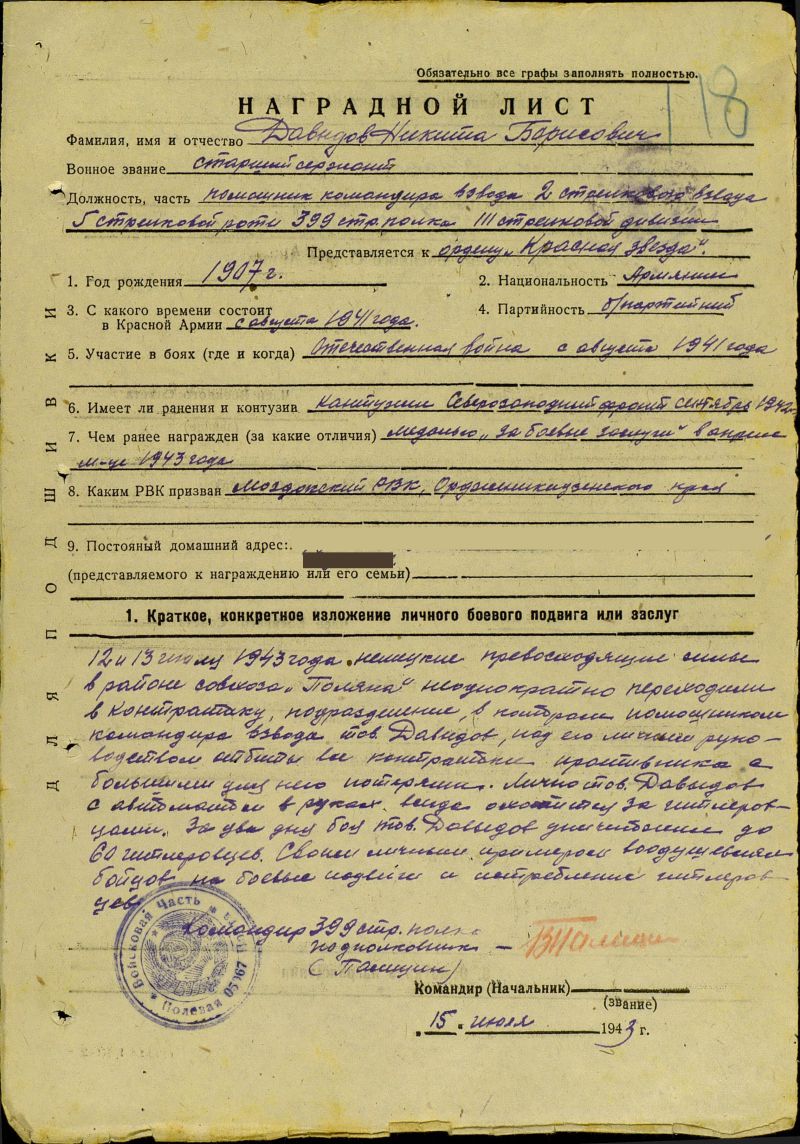 Обязательно все графы заполнять полностью.
118
НАГРАДНОЙ ЛИСТ
Фамилия, имя и отчество Давыдов Никита Борисович
Вонное звание старший сержант
Должность, часть помошник командира взвода 2 стрелкового взвода
5 стрелковой роты 399 стр. полка 111 стрелковой дивизии
Представляется к ордену „Красная звезда".
1. Год рождения 1907 г.
2. Национальность Армянин
3. С какого времени состоит
в Красной Армии с августа 1941 года.
4. Партийность б/партийный
5. Участие в боях (где и когда) Отечественная война с августа 1941 года
6. Имеет ли ранения и контузив контузии Северозападный фронт сентябрь 1942
7. Чем ранее награжден (за какие отличия) медалью „За боевые заслуги" в апреле
м-це 1943 года
8. Каким РВК призван Моздокский РВК, Орджоникидзенского края
9. Постояный домашний адрес:
(представляемого к награждению или его семьи)
1. Краткое, конкретное изложение личного боевого подвига или заслуг
12 и 13 июля 1943 года немецкие превосходящие силы
в районе совхоза „Поляна" неоднократно переходили
в контратаку, подразделение, в котором помощником
командира взвода тов. Давыдов, под его личным руко-
водством отбиты все контратаки противника с
большими для него потерями. Лично тов. Давыдов
с автоматом в руках всегда охотится за гитлеров-
цами. За два дня боя тов. Давыдов уничтожено до
60 гитлеровцев. Своим личным примером воодушевлял
бойцов на боевые подвиги и истребление гитлеров-
цев.
Командир 399 стр. полка
подполковник –
(Палицин)
Командир (Начальник)
(звание)
15 июля 1943 г.
Войсковая Часть
Полевая 05967
ДЛЯ ПОДШИВКИ